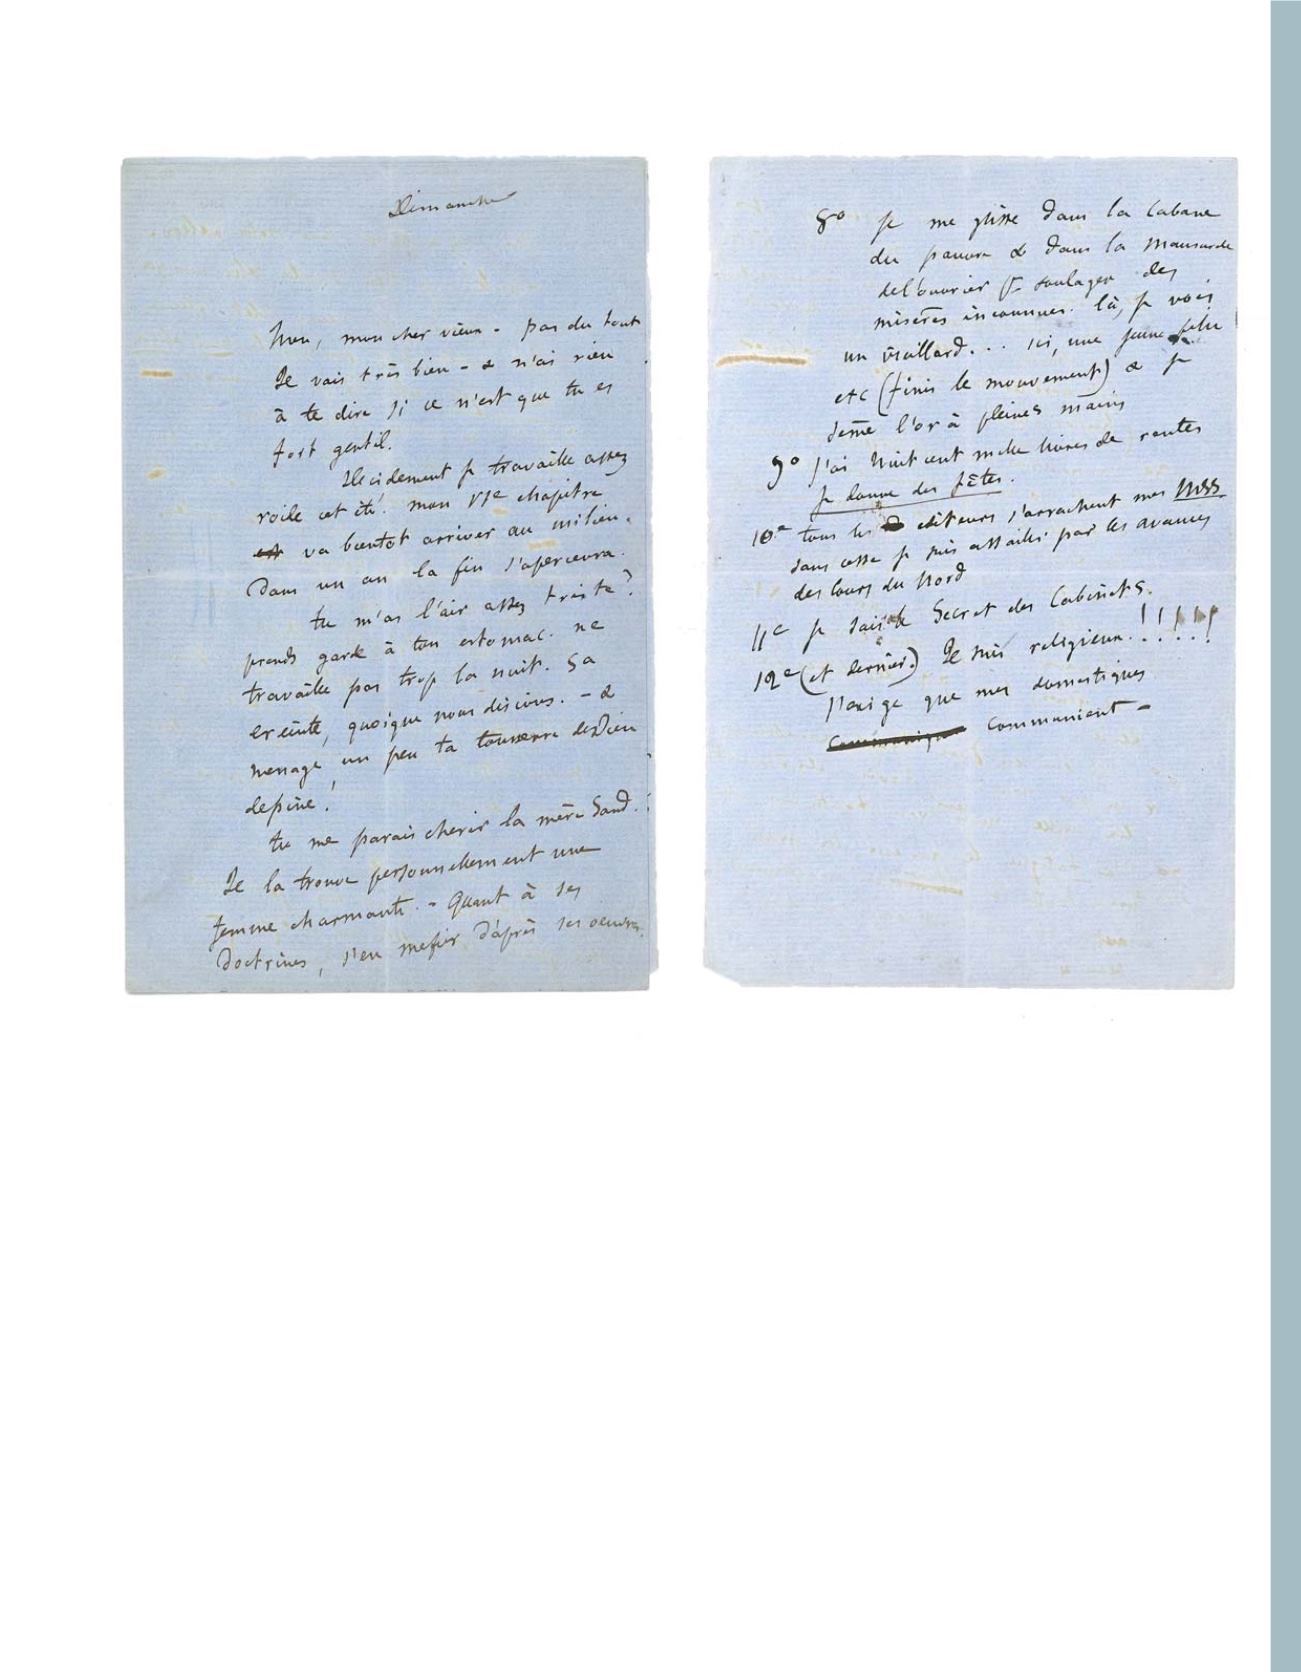 Dimanche
Non, mon cher vieux - pas du tout
Je vais très bien - & n'ai rien
à te dire si ce n'est que tu es
fort gentil.
Decidement je travaille assez
roide cet été! mon VIe chapitre
est va bientot arriver au milieu.
Dans un an la fin s'apercevra.
tu m'as l'air assez triste?
prends garde à ton estomac. ne
travaille pas trop la nuit. ça
ereinte, quoique nous disions. - &
menage un peu ta tonnerre de Dieu
de pine!
tu me parais cherir la mère Sand.
Je la trouve personnellement une
femme charmante. - Quant à ses
doctrines, s'en mefier d'après ses oeuvres.
8° je me glisse dans la cabane
du pauvre & dans la mansarde
de l'ouvrier pr soulager des
misères inconnues. là, je vois
un vieillard... ici, une jeune fille
etc (finis le mouvement) & je
sème l'or à pleines mains
9° J'ai huit cent mille livres de rentes
je donne des fêtes.
10e tous les editeurs s'arrachent mes mss
sans cesse je suis assailli par les avances
des cours du Nord
11e je sais le Secret des Cabinets.
12e (et dernier.) Je suis religieux!!!!!
J'exige que mes domestiques
communient -